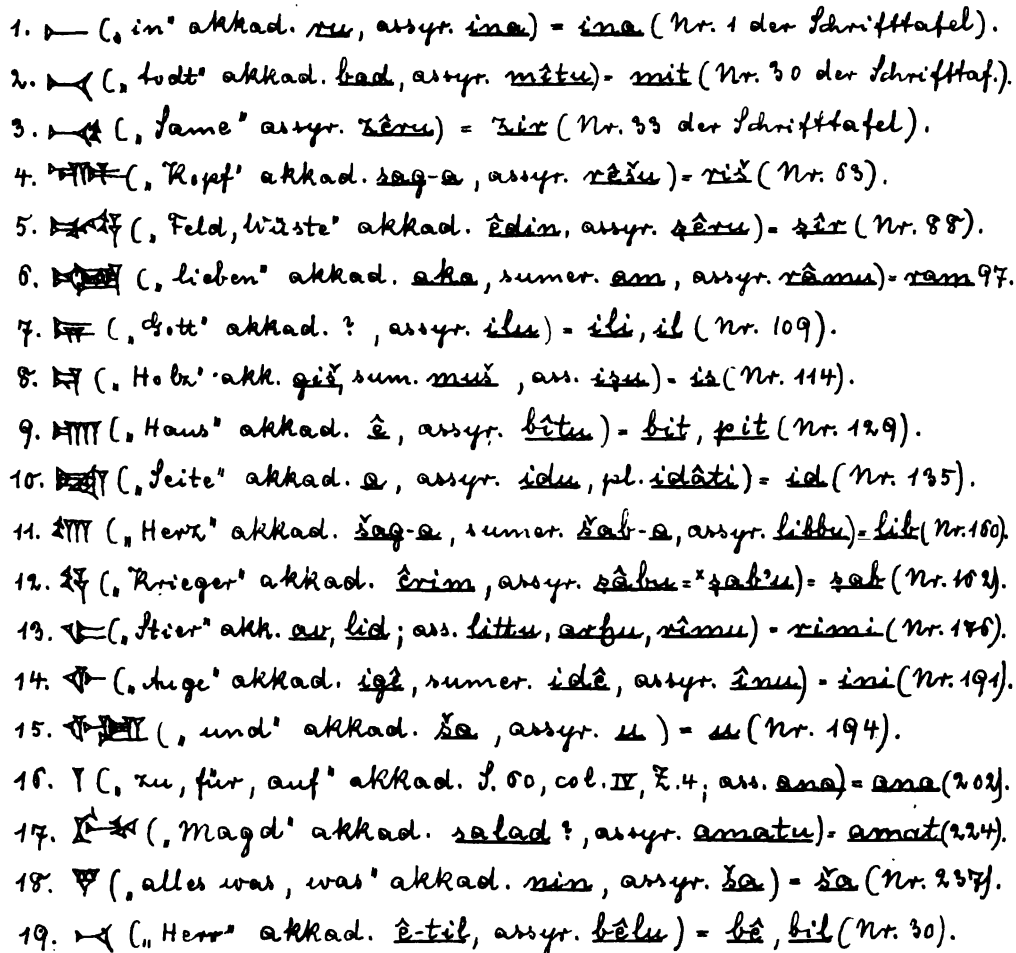 1. 𒀸 („in“ akkad. ru, assyr. ina) = ina (Nr. 1 der Schrifttafel).
2. 𒁁 („todt“ akkad. bad, assyr. mîtu) = mit (Nr. 30 der Schrifttaf.).
3. 𒆰 („Same“ assyr. zêru) = zir (Nr. 33 der Schrifttafel).
4. („Kopf“ akkad. sag-a, assyr. rêšu) = riš (Nr. 63).
5. („Feld, Wüste“ akkad. êdin, assyr. ṣêru) = ṣîr (Nr. 88).
6. („lieben“ akkad. aka, sumer. am, assyr. râmu) = ram 97.
7. („Gott“ akkad. ?, assyr. ilu) = ili, il (Nr. 109).
8. („Holz“ akk. giš, sum. muš, ass. iṣu) = is (Nr. 114).
9. („Haus“ akkad. ê, assyr. bîtu) = bit, pit (Nr. 129).
10. („Seite“ akkad. a, assyr. idu, pl. idâti) = id (Nr. 135).
11. („Herz“ akkad. šag-a, sumer. šab-a, assyr. libbu) = lib (Nr. 160).
12. („Krieger“ akkad. êrim, assyr. ṣâbu = ˣṣab’u) = ṣab (Nr. 162).
13. („Stier“ akk. av, lid; ass. littu, arḫu, rîmu) = rimi (Nr. 176).
14. („Auge“ akkad. igê, sumer. idê, assyr. înu) = ini (Nr. 191).
15. („und“ akkad. ša, assyr. u) = u (Nr. 194).
16. 𒁹 („zu, für, auf“ akkad. S. 60, col. IV, Z. 4; ass. ana) = ana (202).
17. („Magd“ akkad. salad ?, assyr. amatu) = amat (224).
18. („alles was, was“ akkad. nin, assyr. ša) = ša (Nr. 237).
19. 𒁁 („Herr“ akkad. ê-til, assyr. bêlu) = bê, bil (Nr. 30).